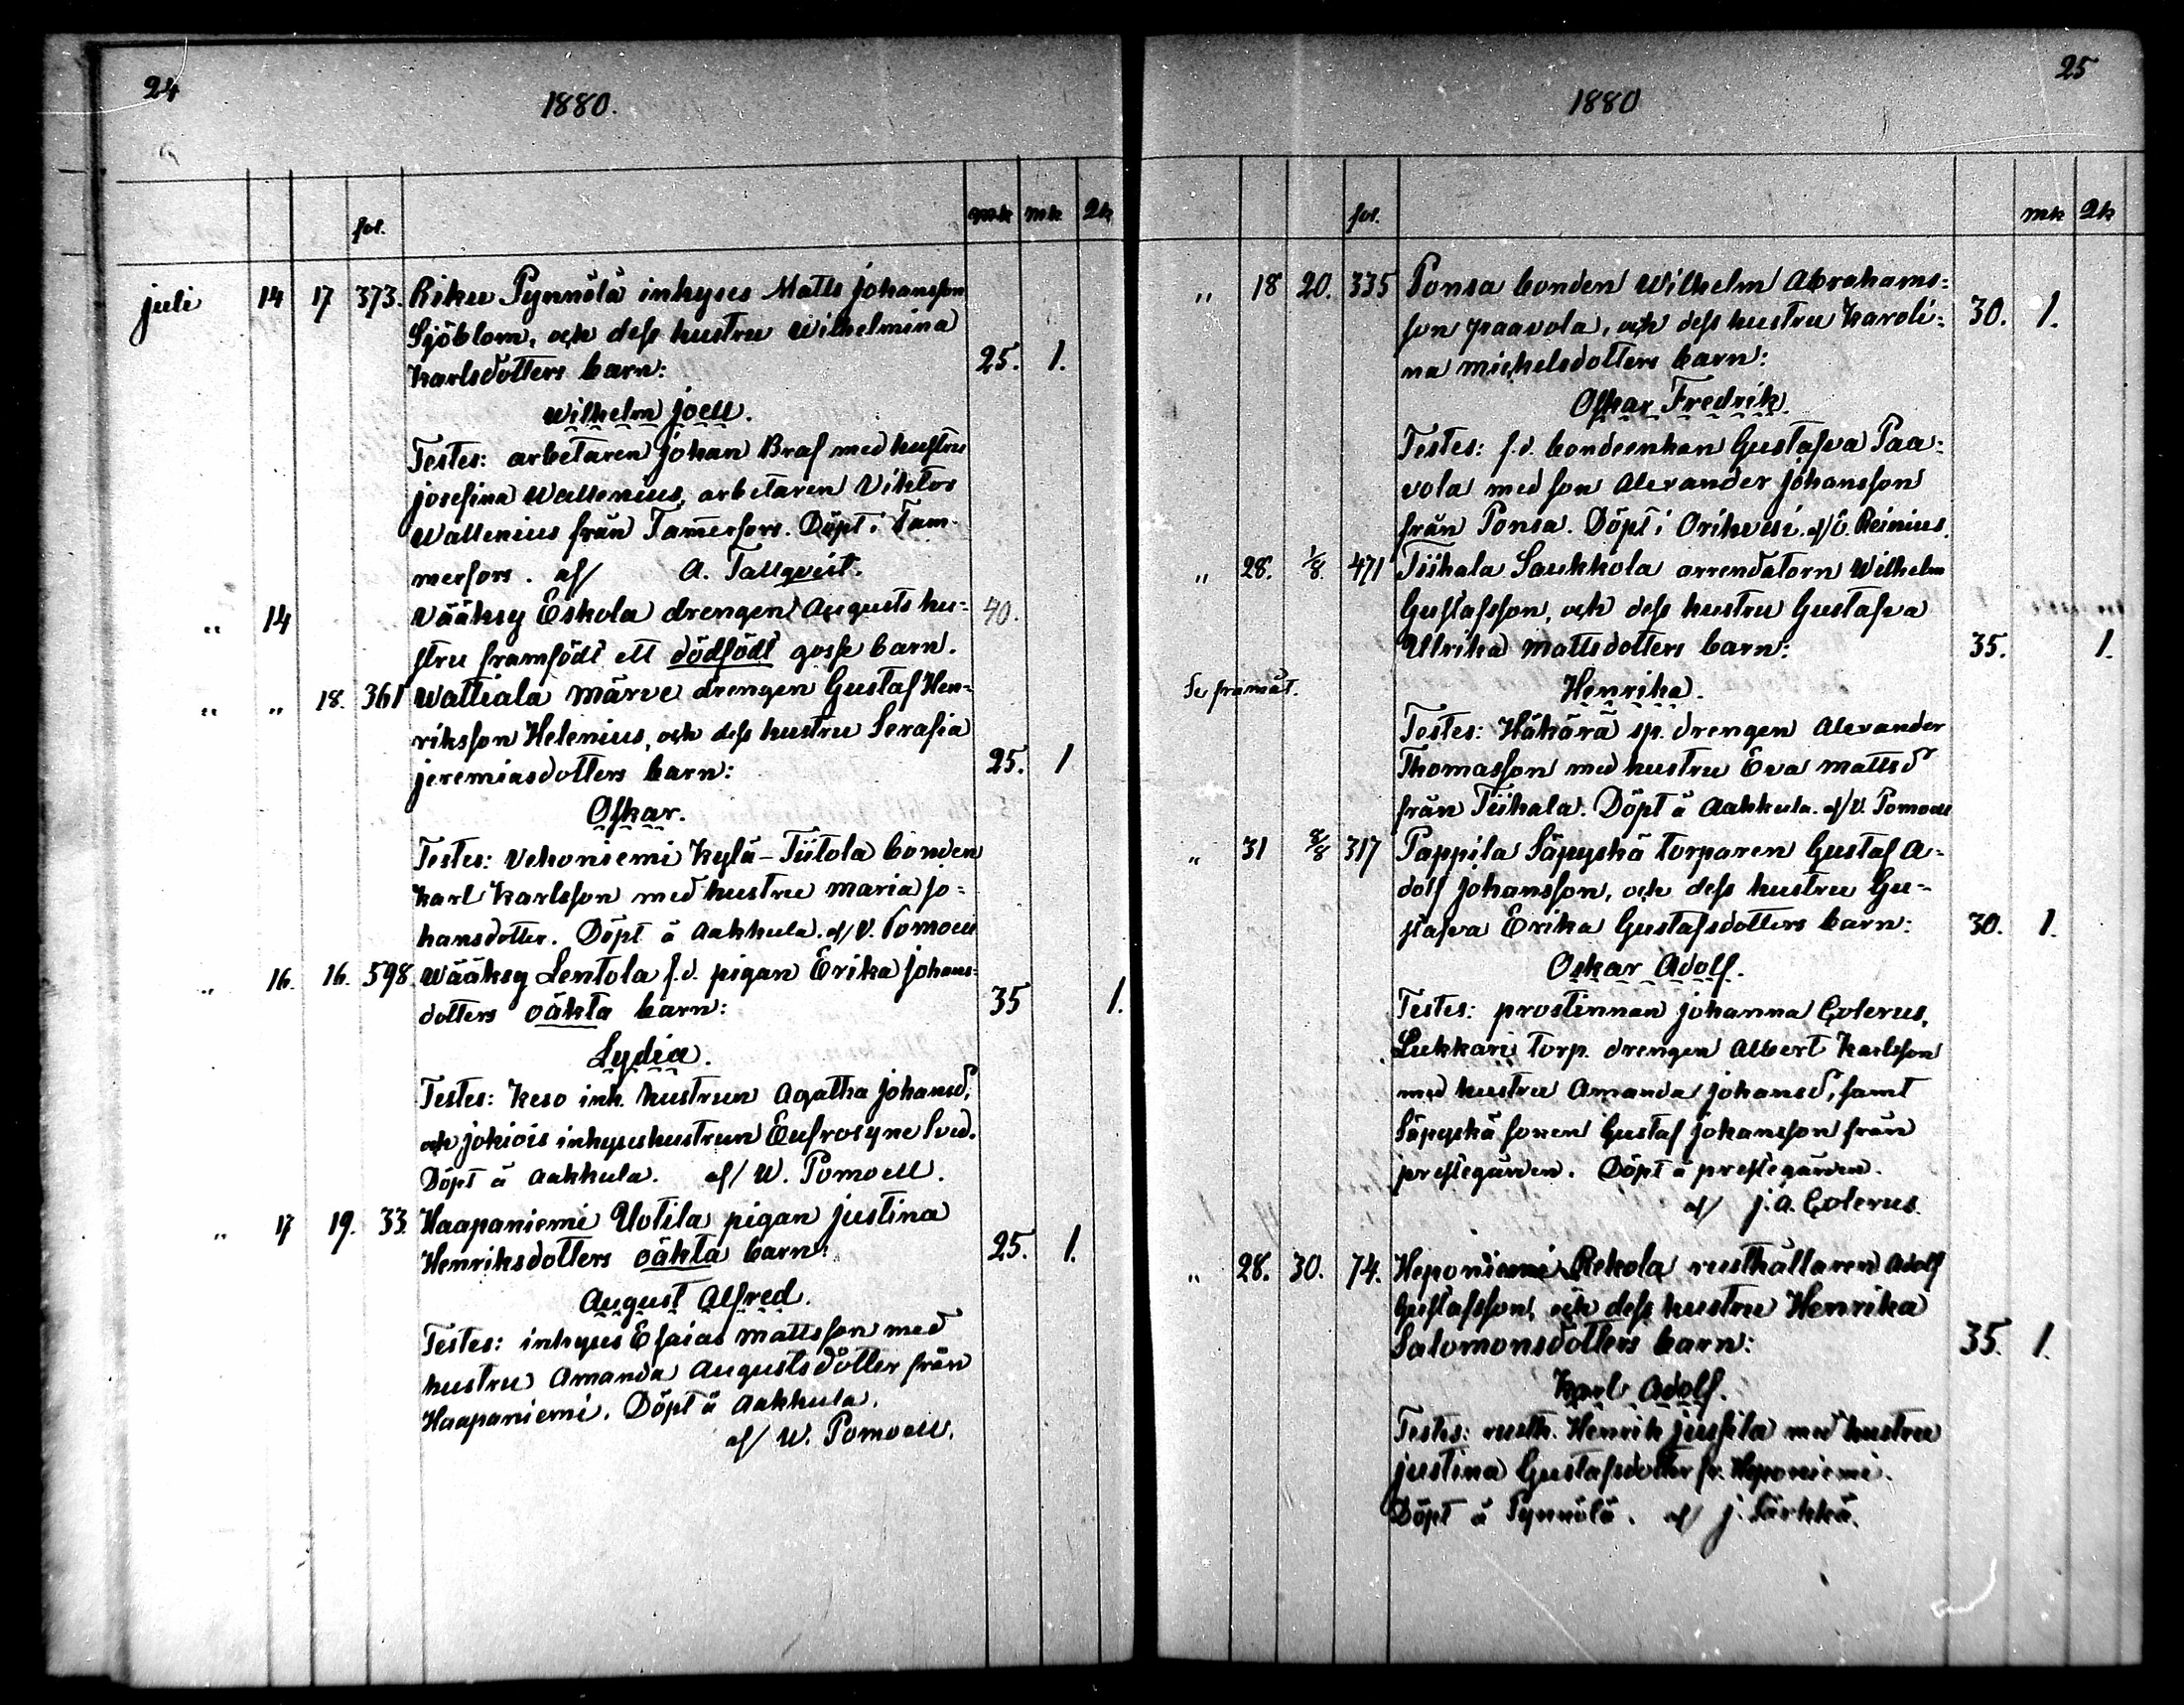 24
1880.
fol. mk mk Qk
juli 14 17 373. Riku Pynnölä inhyses Matts Johansson
Sjöblom, och dess hustru Wilhelmina
Karlsdotters barn: 25. 1.
Wilhelm Joell.
Testes: arbetaren Johan Braf med hustru
Josefina Wallenius, arbetaren Viktor
Wallenius från Tamerfors. Döpt i Tam-
merfors. af/ A. Tallqvist.
„ 14 Vääksy Eskola drengen Augusts hu- 40.
stru framfödt ett dödfödt gosse barn.
„ „ 18. 361 Wattiala Märve drengen Gustaf Hen-
riksson Helenius, och dess hustru Serafia
Jeremiasdotters barn: 25. 1
Oskar.
Testes: Vehoniemi Kylä-Tiitola bonden
Karl Karlsson med hustru Maria Jo-
hansdotter. Döpt å Aakkula. af/ V. Pomoell
„ 16. 16. 598. Wääksy Lentola f.d. pigan Erika Johans-
dotters oäkta barn: 35 1.
Lydia.
Testes: Keso inh. hustrun Agatha Johansd,
och Jokiois inhyseshustrun Eufrosyne
Döpt å Aakkula. af/ W. Pomoell.
„ 17 19. 33. Haapaniemi Uotila pigan Justina
Henriksdotters oäkta barn: 25. 1.
August Alfred.
Testes: inhyses Esaias Mattsson med
hustru Amanda Augustsdotter från
Haapaniemi. Döpt å Aakkula.
af/ W. Pomoell.
25
1880
fol. mk Qk
„ 18 20. 335 Ponsa bonden Wilhelm Abrahams-
son Paavola, och dess hustru Karoli- 30. 1.
na Michelsdotters barn:
Oskar Fredrik.
Testes: f.d. bondeenkan Gustafva Paa-
vola med son Alexander Johansson
från Ponsa. Döpt i Orihvesi. af/ O. Reinius.
„ 28. 1/8. 471 Tiihala Saukkola arrendatorn Wilhelm
Gustafsson, och dess hustru Gustafva
Ulrika Mattsdotters barn: 35. 1.
Se framåt. Henrika.
Testes: Häkärä sp. drengen Alexander
Thomasson med hustru Eva Mattsd
från Tiihala. Döpt å Aakkula. af/ V. Pomoell
„ 31 8/8 317 Pappila Säpyskä torparen Gustaf A-
dolf Johansson, och dess hustru Gu-
stafva Erika Gustafsdotters barn: 30. 1.
Oskar Adolf.
Testes: prostinnan Johanna Colerus,
Lukkari torp. drengen Albert Karlsson
med hustru Amanda Johansd, samt
Säpyskä sonen Gustaf Johansson från
prestegården. Döpt å prestegården.
af/ J. A. Colerus.
„ 28. 30. 74. Heponiemi Rekola rusthållaren Adolf
Gustafsson, och dess hustru Henrika
Salomonsdotters barn: 35. 1.
Karl Adolf.
Testes: rusth. Henrik Jussila med hustru
Justina Gustafsdotter fr. Heponiemi.
Döpt å Pynnölä. af/ J. Särkkä.